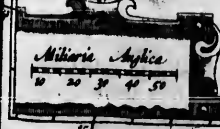 Miliaria Anglica
10 20 30 40 50